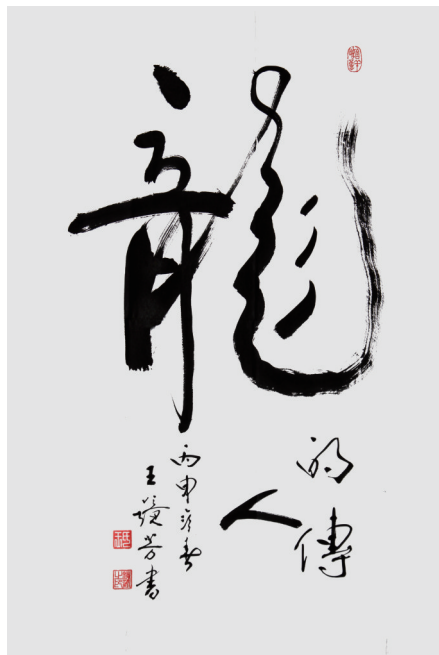 龍
的傳
人
丙申春
王芳書